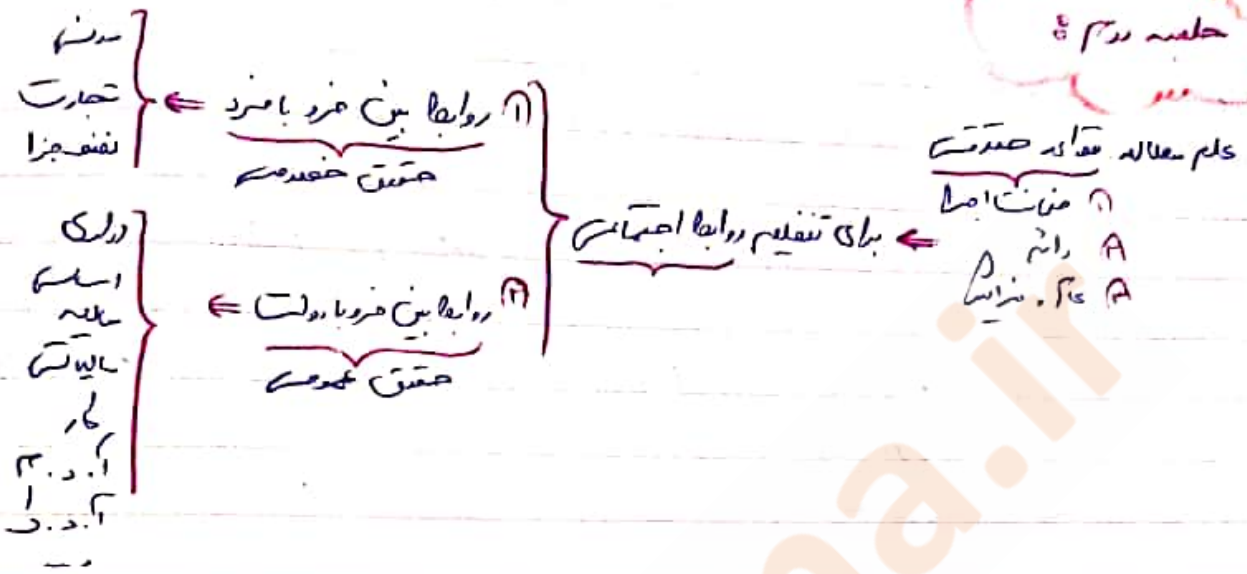 جلسه دوم:
علم مطالعه قواعد حقوقی
① ضمانت اجرا
دائم
عام
← برای تنظیم روابط اجتماعی
① روابط بین فرد با فرد ←
حقوق خصوصی
مدنی
تجارت
② روابط بین فرد با دولت ←
حقوق عمومی
اداری
اساسی
مالیه
مالیاتی
کار
آ.د.م
آ.د.ک
...